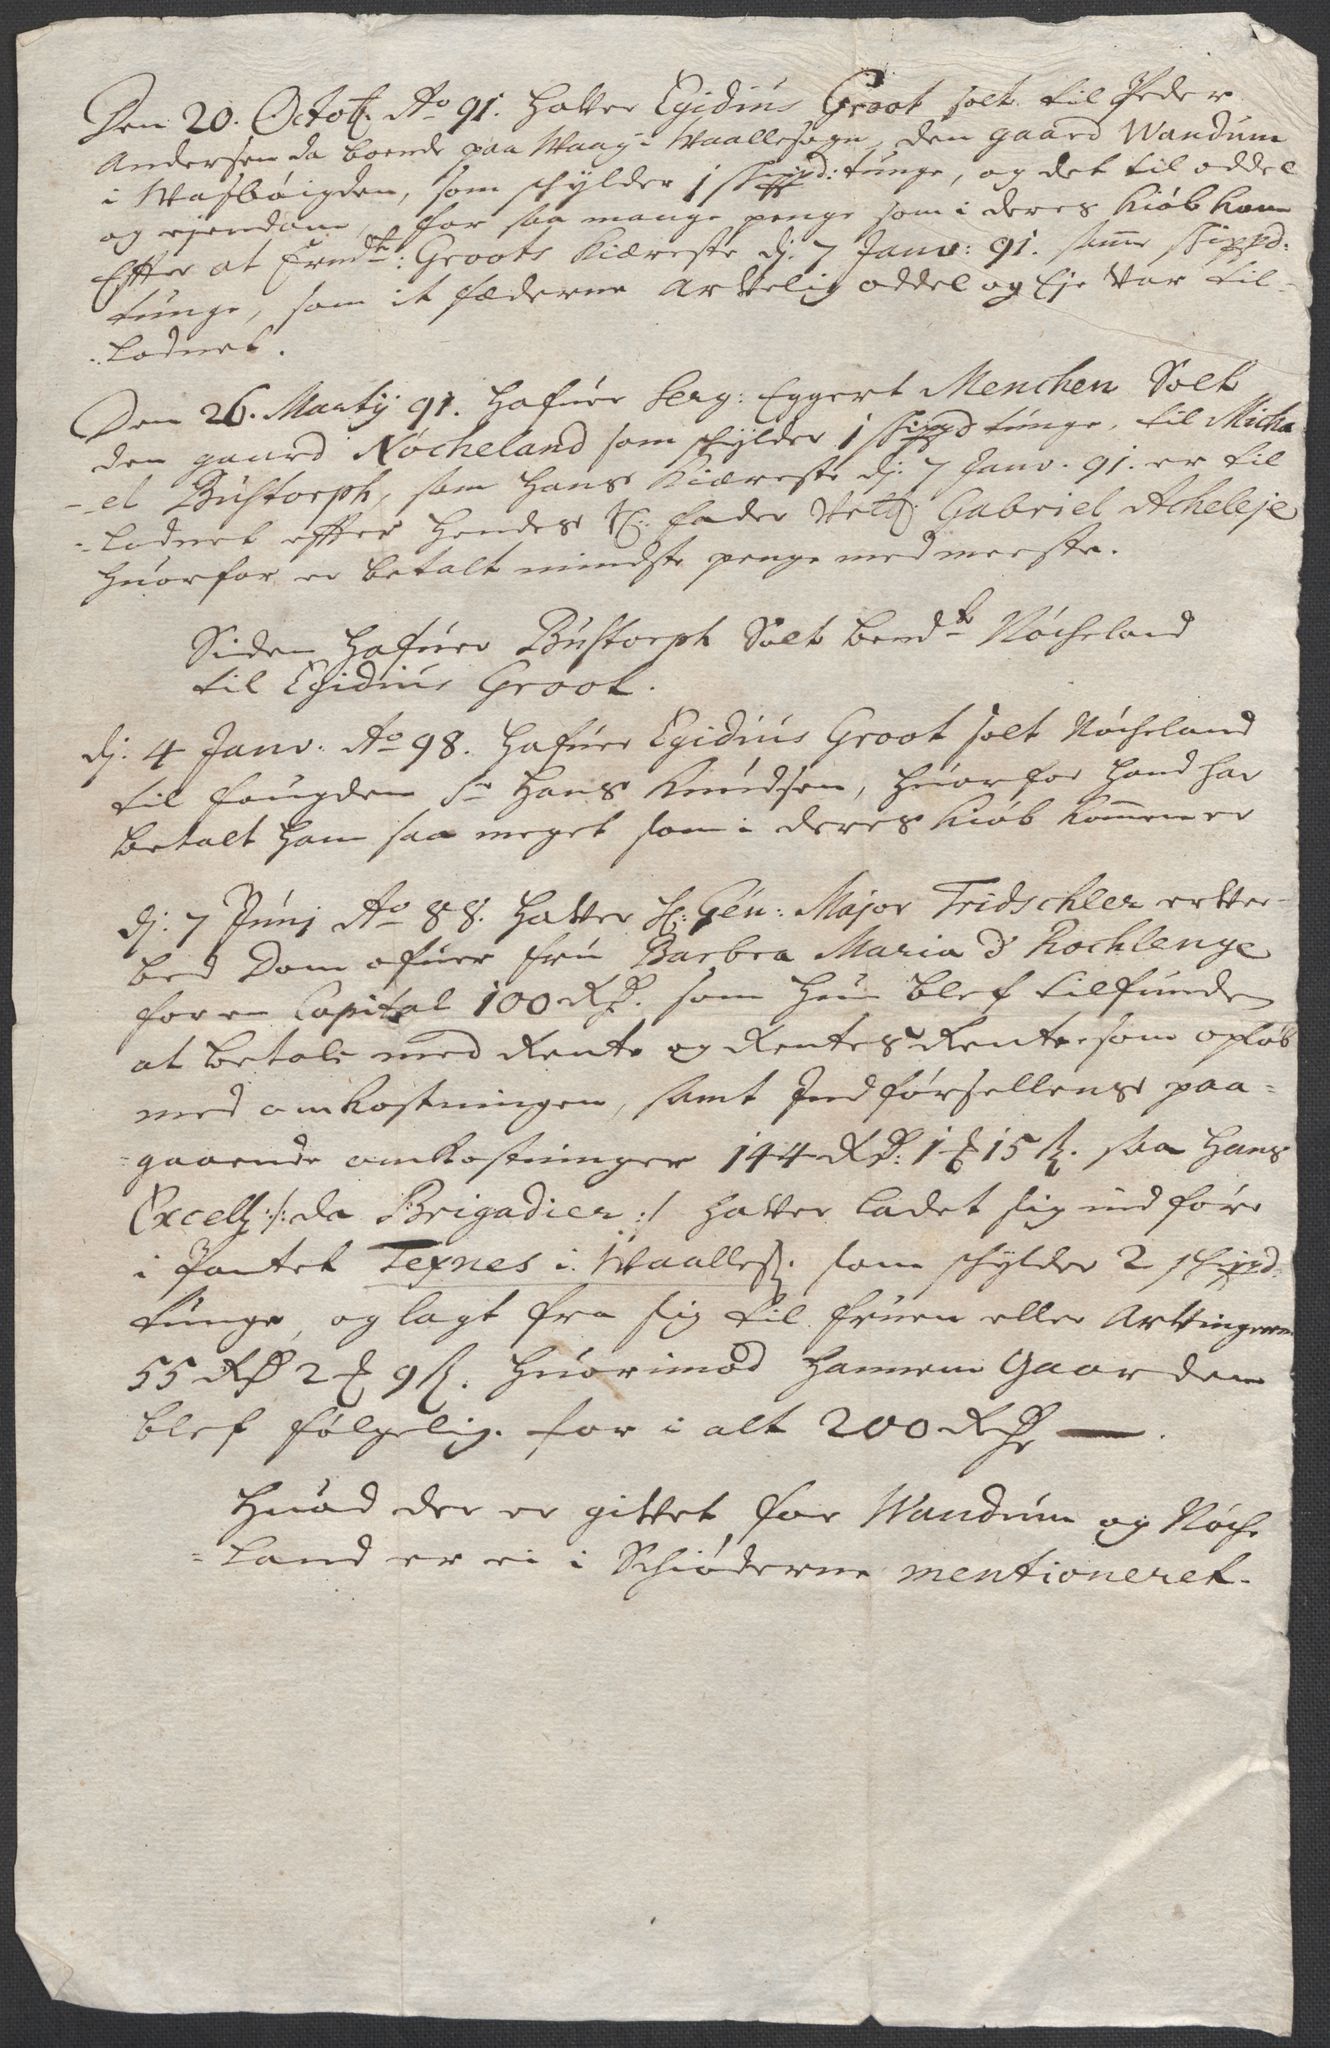 Den 20. Octob. Ao 91. hafver Egidius Groot solt til Peder
Andersen da boende paa Waag i Waallesogn, den gaard Wandum
i Wasbøigden, som schylder j schippd: tunge, og det til oddel
og ejendom, for saa mange penge som i deres Kiøb kom
Effter at Ermdte: Groots Kiæreste dj. 7 Janv: 91. samme schippd:
tunge, som it fæderne Arfvelig oddel og Eje var til-
-lodnet.
Den 26. Martij 91. hafuer Serg: Eggert Menchen Solt
den gaard Nøcheland som schylder j schippd tunge, til Micha
-el Bustorph, som hans Kiæreste dj. 7 Janv. 91. er til
-lodnet effter hendes Sl: fader Velb: Gabriel Acheleje
huorfor er betalt mindste penge med meeste.
Siden hafuer Bustorph Solt bemdte Nøcheland
til Egidius Groot.
dj. 4 Janv. Ao 98. hafuer Egidius Groot solt Nøcheland
til fougden Sr Hans Knudsen, huorfor hand har
betalt ham saa meget som i deres Kiøb kommen er
dj. 7 Junj Ao 88. hafver H: Gen: Major Tridschler erver-
bed Dom ofuer fru Barbra Maria d' Rochlenge
for en Capital 100 Rd. som hun blef tilfunden
at betale med Rente og Rentes Rente som opløb
med omkostningen, samt Indførsellens paa-
-gaaende omkostninger 144 Rd: 1 ß 15 s. saa hans
Excell: /: da Brigadier :/ hafver ladet sig indføre
i Pantet Texnes i Waalles. som schylder 2 schippd.
tunge, og lagt fra sig til fruen eller Arfvingerne
55 Rd 2 ß 9 s. huorimod hannem Gaarden
blef følgelig. for i alt 200 Rd —.
Huad der er gifvet for Wandum og Nøche
-land er ei i Schiøderne mentioneret.